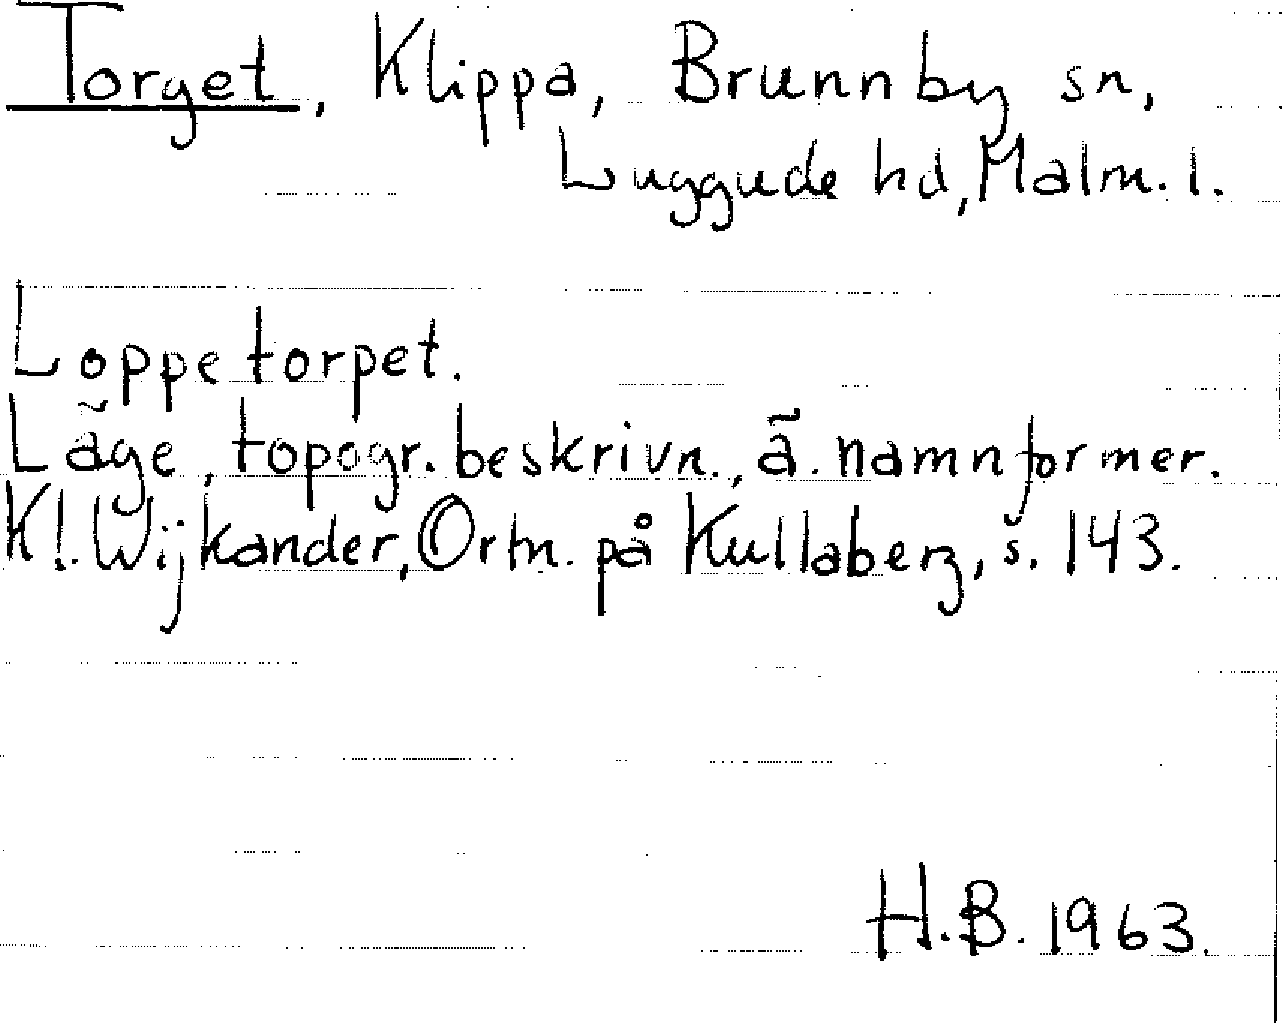 Torget, Klippa, Brunnby sn,
Luggude hd, Malm. l.
Loppetorpet.
Läge, topogr. beskrivn., ä. namnformer.
Kl. Wijkander, Ortn. på Kullaberg, s. 143.
H.B. 1963.